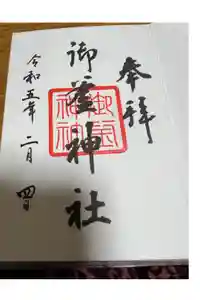 奉拝
御霊神社
令和五年 二月 四日